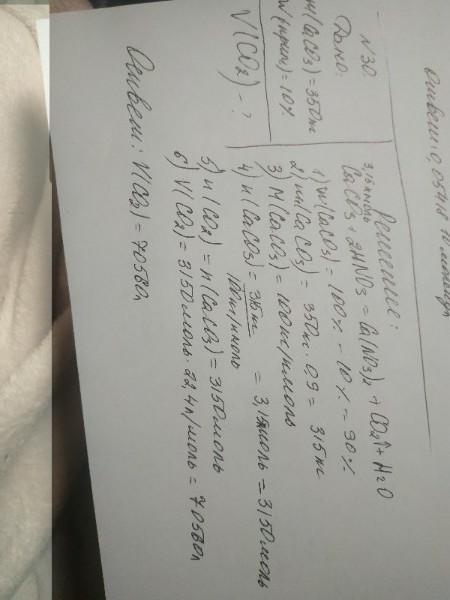 Ответ: 0,054
N 30.
Дано:
m(CaCO3) = 350кг
W(прим) = 10%
V(CO2) - ?
Решение:
CaCO3 + 2HNO3 = Ca(NO3)2 + CO2↑ + H2O
1) W(CaCO3) = 100% - 10% = 90%
2) m(CaCO3) = 350кг · 0,9 = 315кг
3) M(CaCO3) = 100кг/кмоль
4) n(CaCO3) = 315кг / 100кг/кмоль = 3,15кмоль = 3150моль
5) n(CO2) = n(CaCO3) = 3150моль
6) V(CO2) = 3150моль · 22,4л/моль = 70560л
Ответ: V(CO2) = 70560л